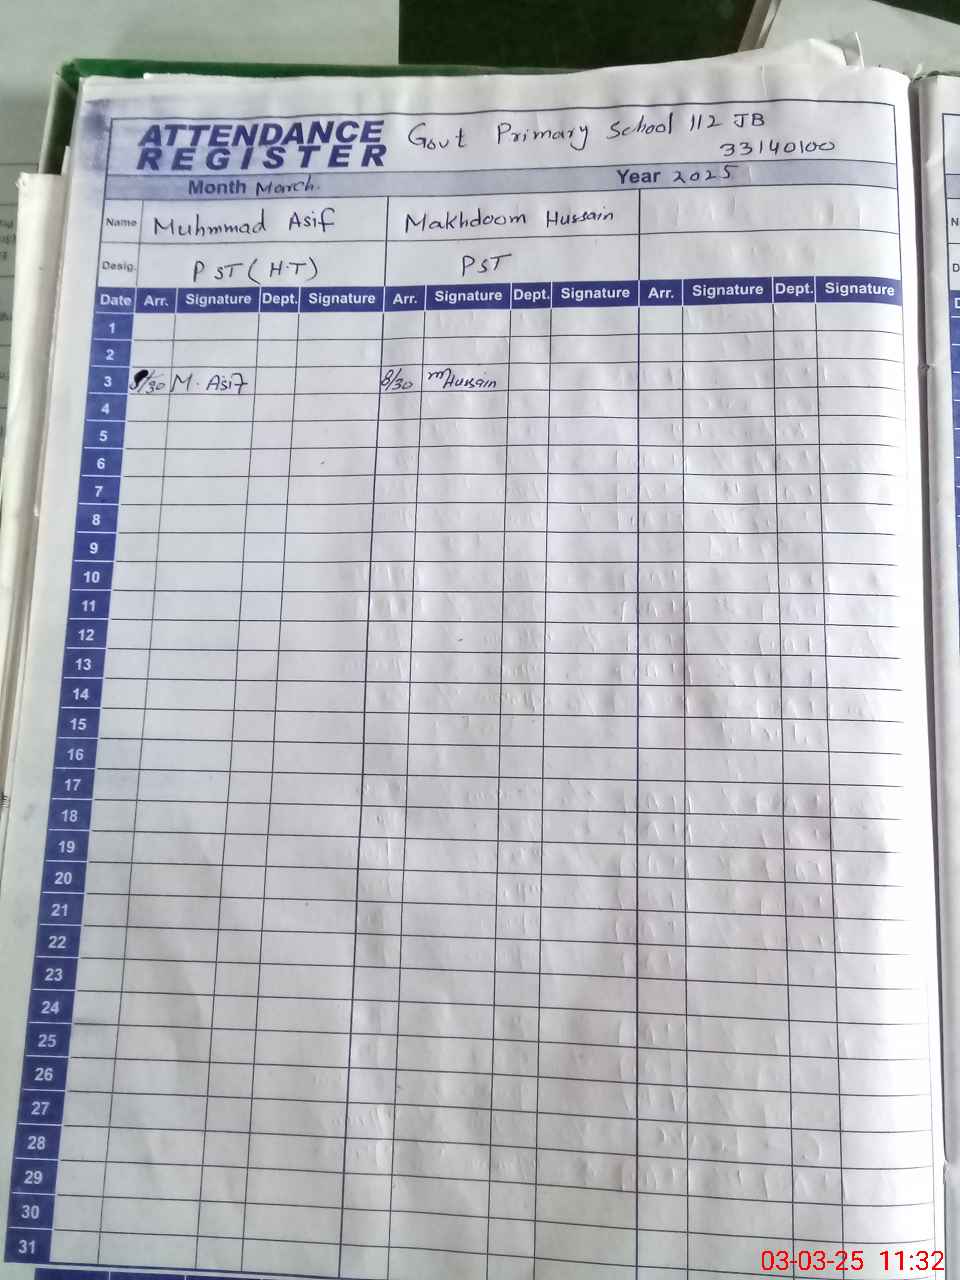 ATTENDANCE REGISTER Govt Primary School 112 JB
33140100
Month March. Year 2025
Name Muhmmad Asif Makhdoom Hussain
Desig. PST (H.T) PST
Date Arr. Signature Dept. Signature Arr. Signature Dept. Signature Arr. Signature Dept. Signature
1
2
3 8/30 M. Asif 8/30 M Hussain
4
5
6
7
8
9
10
11
12
13
14
15
16
17
18
19
20
21
22
23
24
25
26
27
28
29
30
31
03-03-25 11:32